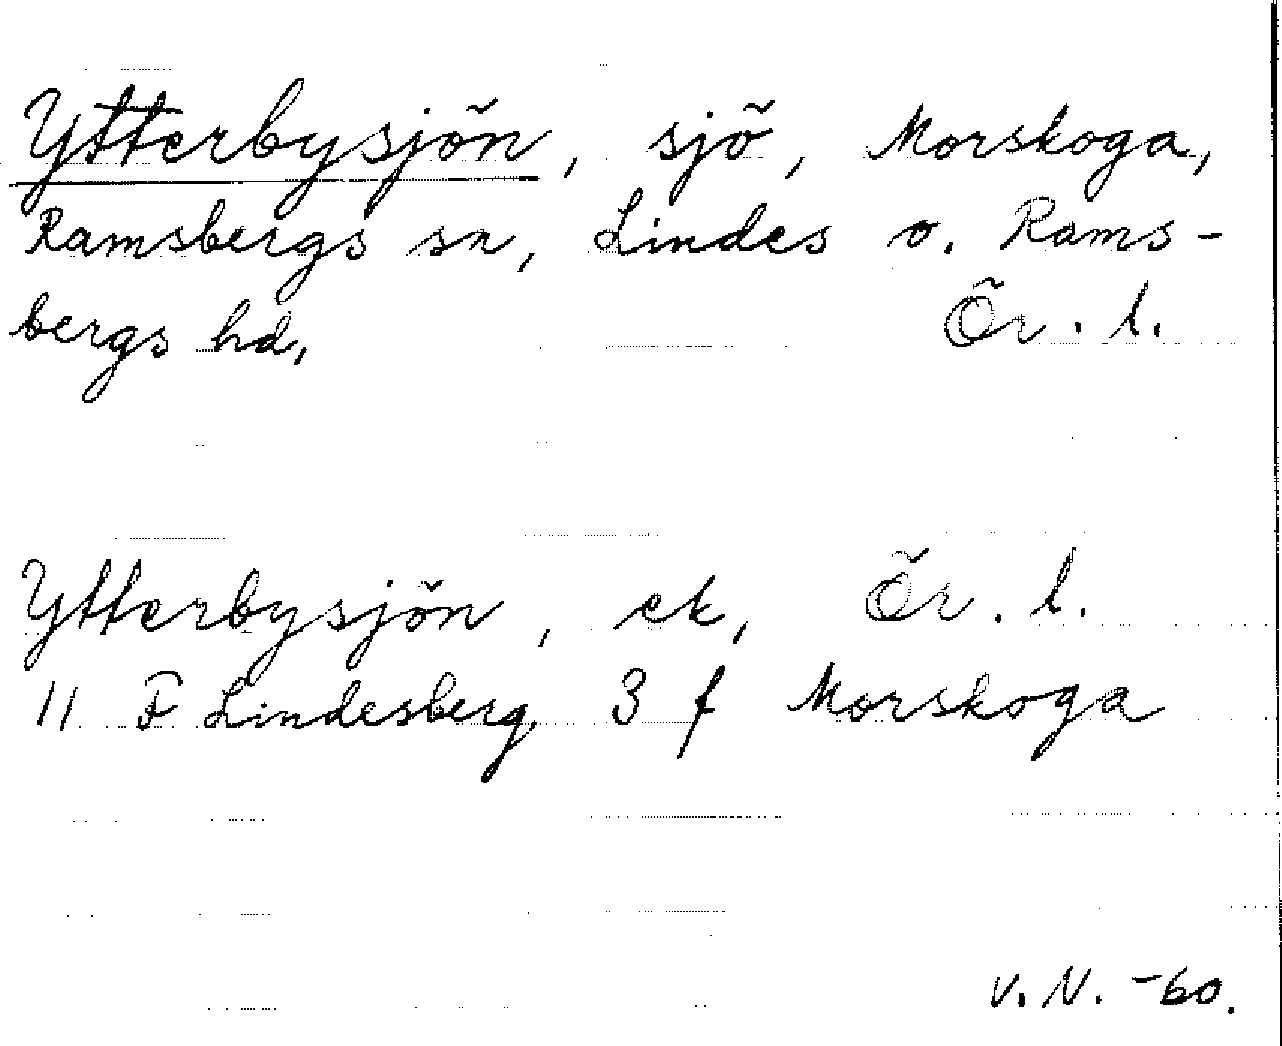 Ytterbysjön, sjö, Morskoga,
Ramsbergs sn, Lindes o. Rams-
bergs hd, Ör. l.
Ytterbysjön, ek, Ör. l.
11 F Lindesberg 3 f Morskoga
V. N. -60.